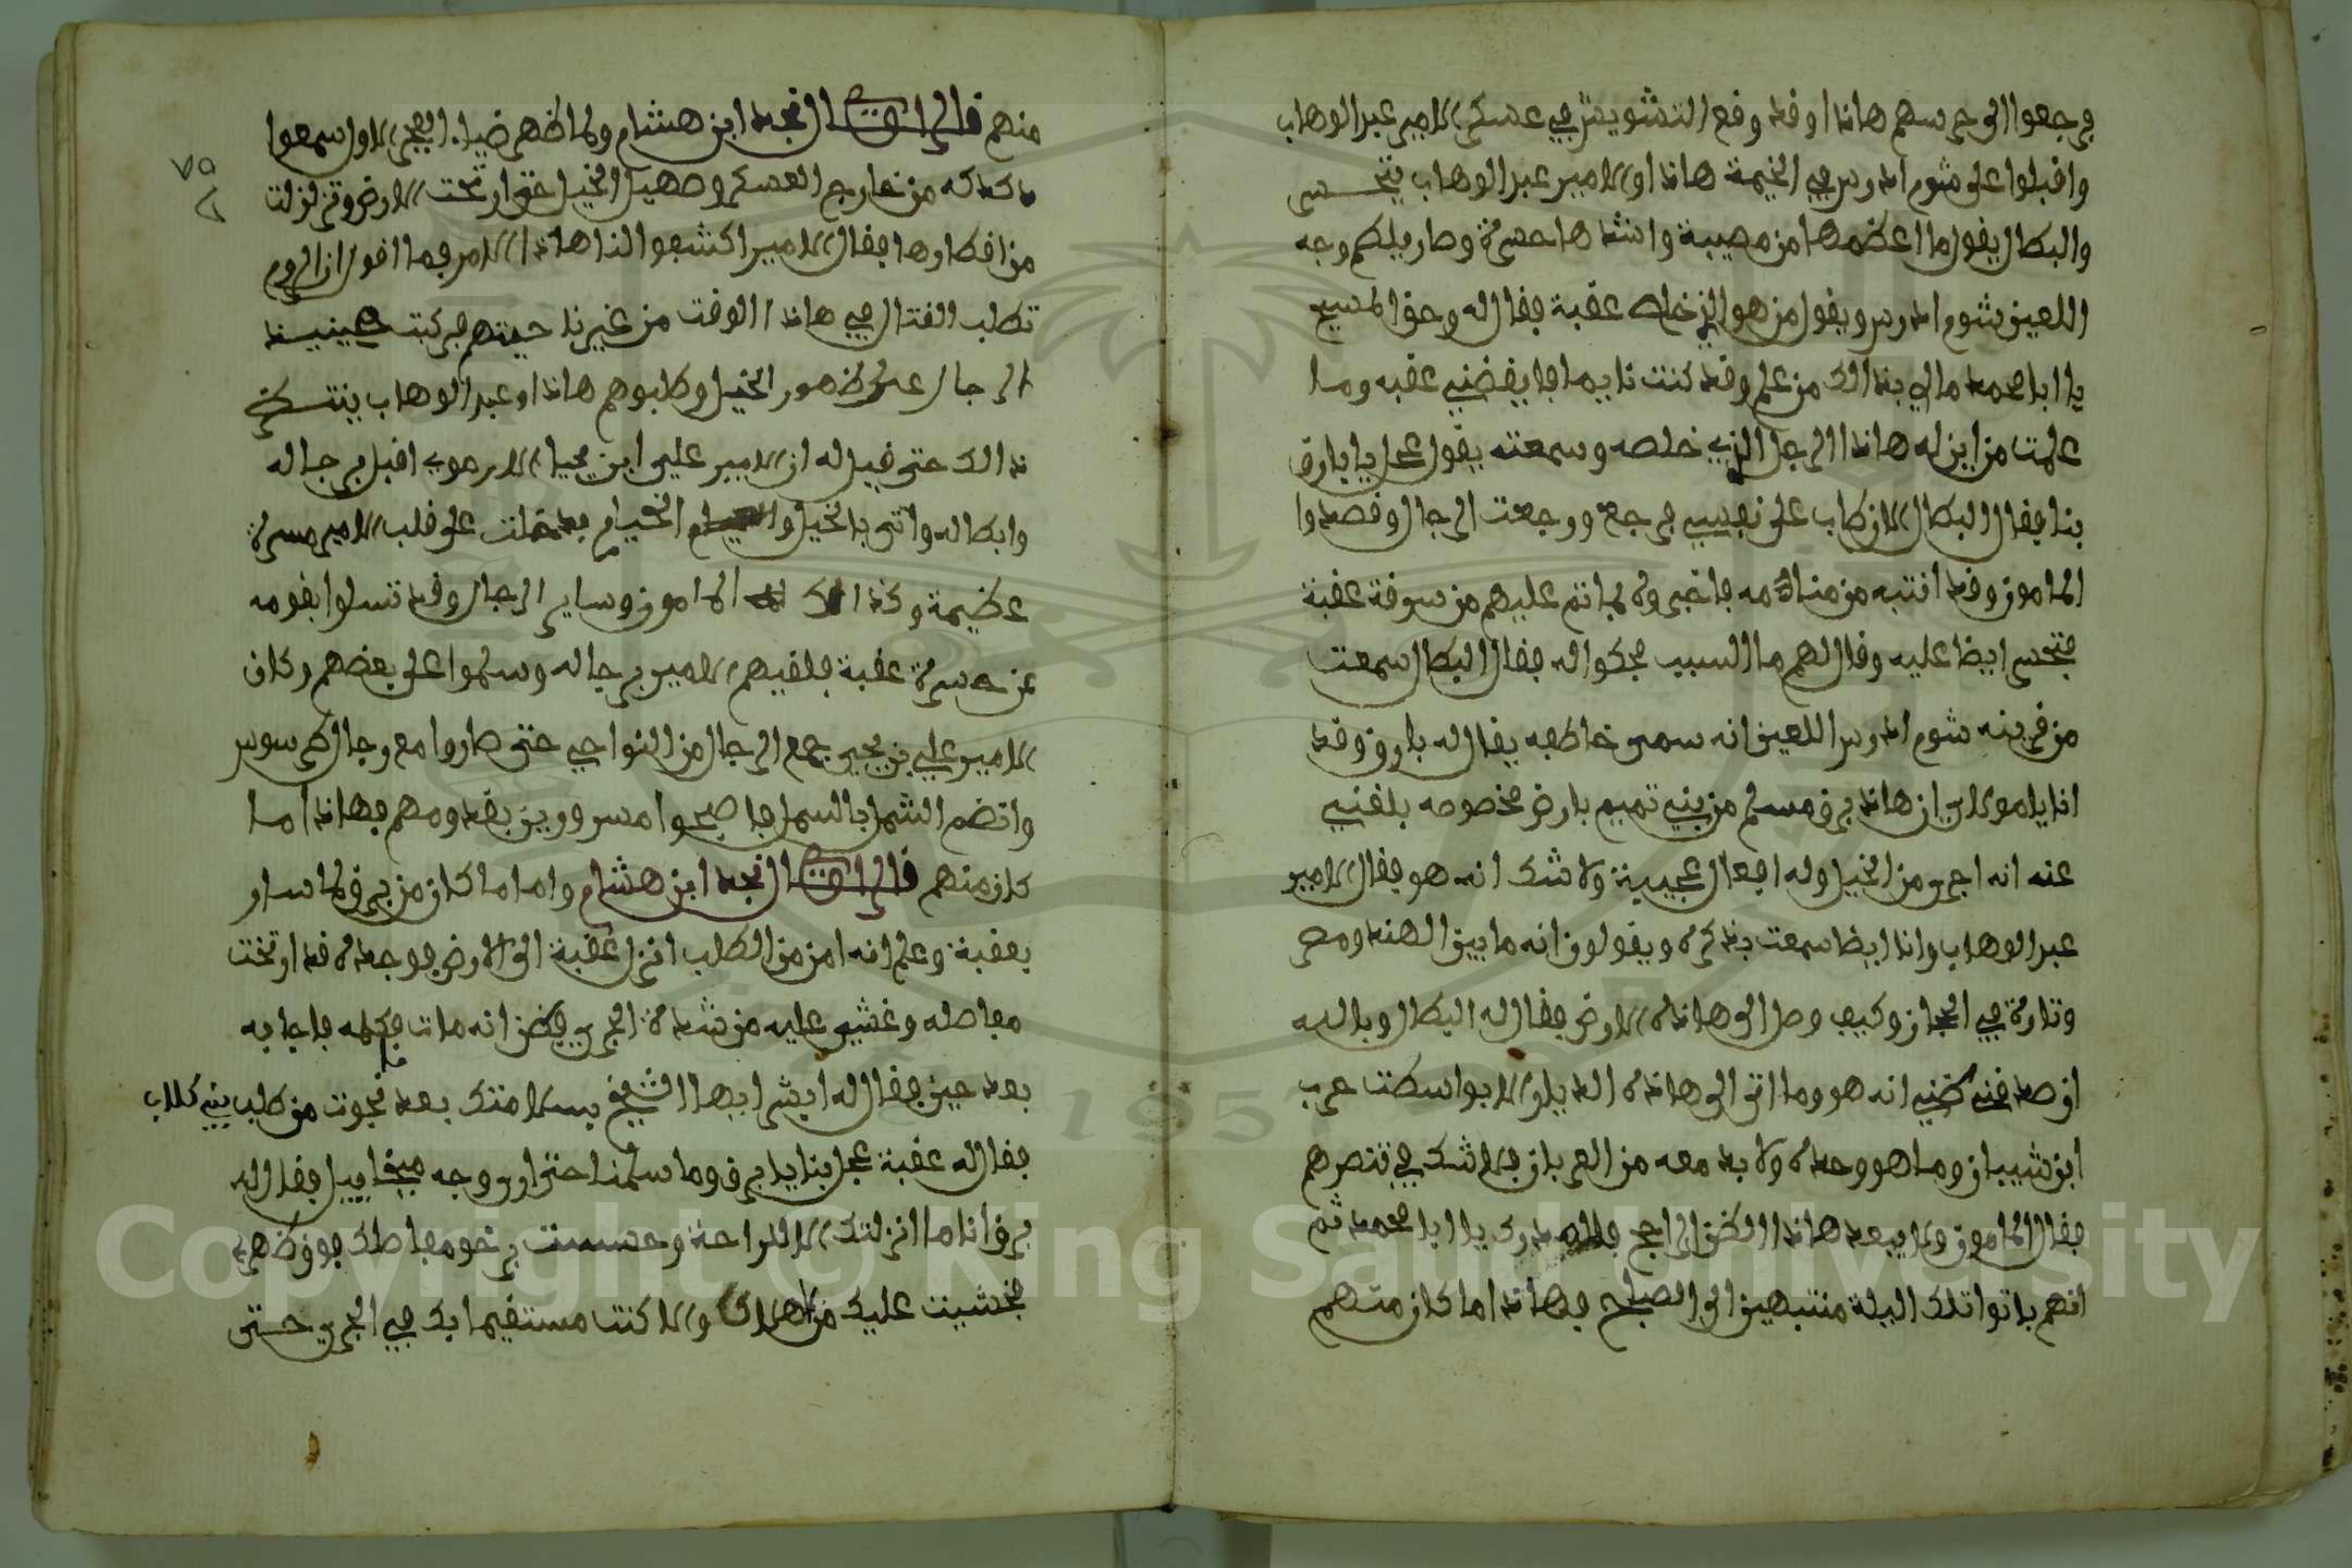 فرجعوا الى حرسهم هاذا وقد وقع التشويش في عسكر الامير عبد الوهاب
واقبلوا على شوم ادرس في الخيمة هاذا والامير عبد الوهاب يتحسر
والبطال يقول ما اعظمها من مصيبة واشدها حسرة وصار يلطم وجه
اللعين شوم ادرس ويقول من هو الذي خلص عقبة فقال له وحق المسيح
يا ابا محمد مالي بذالك من علم وقد كنت نايما فايقضني عقبه وما
علمت من اين له هاذا الرجل الذي خلصه وسمعته يقول عجل يا بارق
بنا فقال البطال الان طاب على نفسي فرجع ورجعت الرجال وقصدوا
المامون وقد انتبه من منامه فاخبروه لما تم عليهم من سرقة عقبة
فتحسر ايضا عليه وقال لهم ما السبب فحكوا له فقال البطال سمعت
من قرينه شوم ادرس اللعين انه سمى خاطفه يقال له بارق وقد
انا يا مولاي ان هاذا برق مسلم من بني تميم بارض مخصوصه بلغني
عنه انه اجرى من الخيل وله افعال عجيبة ولا شك انه هو فقال الامير
عبد الوهاب وانا ايضا سمعت بذكره ويقولون انه ما بين الهند ومصر
وتارة في الحجاز وكيف وصل الى هاذه الارض فقال له البطال وبالله
ان صدقني ظني انه هو وما اتى الى هاذه الديار الا بواسطت حرب
ابن شيبان وما هو وحده ولا بد معه من العربان فلا شك في تنصرهم
فقال المامون ولا يبعد هاذا الظن الراجح فلله درك يا ابا محمد ثم
انهم باتوا تلك اليلة منتبهين الى الصباح فهاذا ما كان منهم
منهم قال الراوي النجد ابن هشام ولما ظهر ضياء الفجر الا وسمعوا
دكدكه من خارج العسكر وصهيل الخيل حتى ارتجت الارض وتزلزلت
من اقطارها فقال الامير اكشفوا لنا هاذا الامر فما اقول ان الروم
تطلب القتال في هاذا الوقت من غير نا حيتهم فركبت حينيذ
الرجال على ظهور الخيل وطلبوهم هاذا وعبد الوهاب ينتظر
ذالك حتى قيل له ان الامير علي ابن يحيا الارموي اقبل برجاله
وابطاله واتى بالخيل والخيام فدخلت على قلب الامير مسرة
عظيمة وكذالك المامون وساير الرجال وقد تسلوا بقومه
عن حسرة عقبة فلقيهم الامير برجاله وسلموا على بعضهم وكان
الامير علي بن يحيى جمع الرجال من النواحي حتى صاروا مع رجال طرسوس
وانضم الشمل بالشمل فاصبحوا مسرورين بقدومهم فهاذا ما
كان منهم قال الراوي النجد ابن هشام واما ما كان من برق لما سار
بعقبة وعلم انه امن من الطلب انزل عقبة الى الارض فوجده قد ارتخت
مفاصله وغشي عليه من شدة الجري فظن انه مات فكلمه فاجابه
بعد حين فقال له ابشر ايها الشيخ بسلامتك بعد نجوت من طلب بني كلاب
فقال له عقبة عجل بنا يا برق وما سلمنا حتى ارى وجه ميخاييل فقال له
برق انا ما انزلتك الا للراحة وحسست برخو مفاصلك فوق ظهري
فخشيت عليك من الهلاك والا كنت مستقيما بك في الجري حتى
٧٥